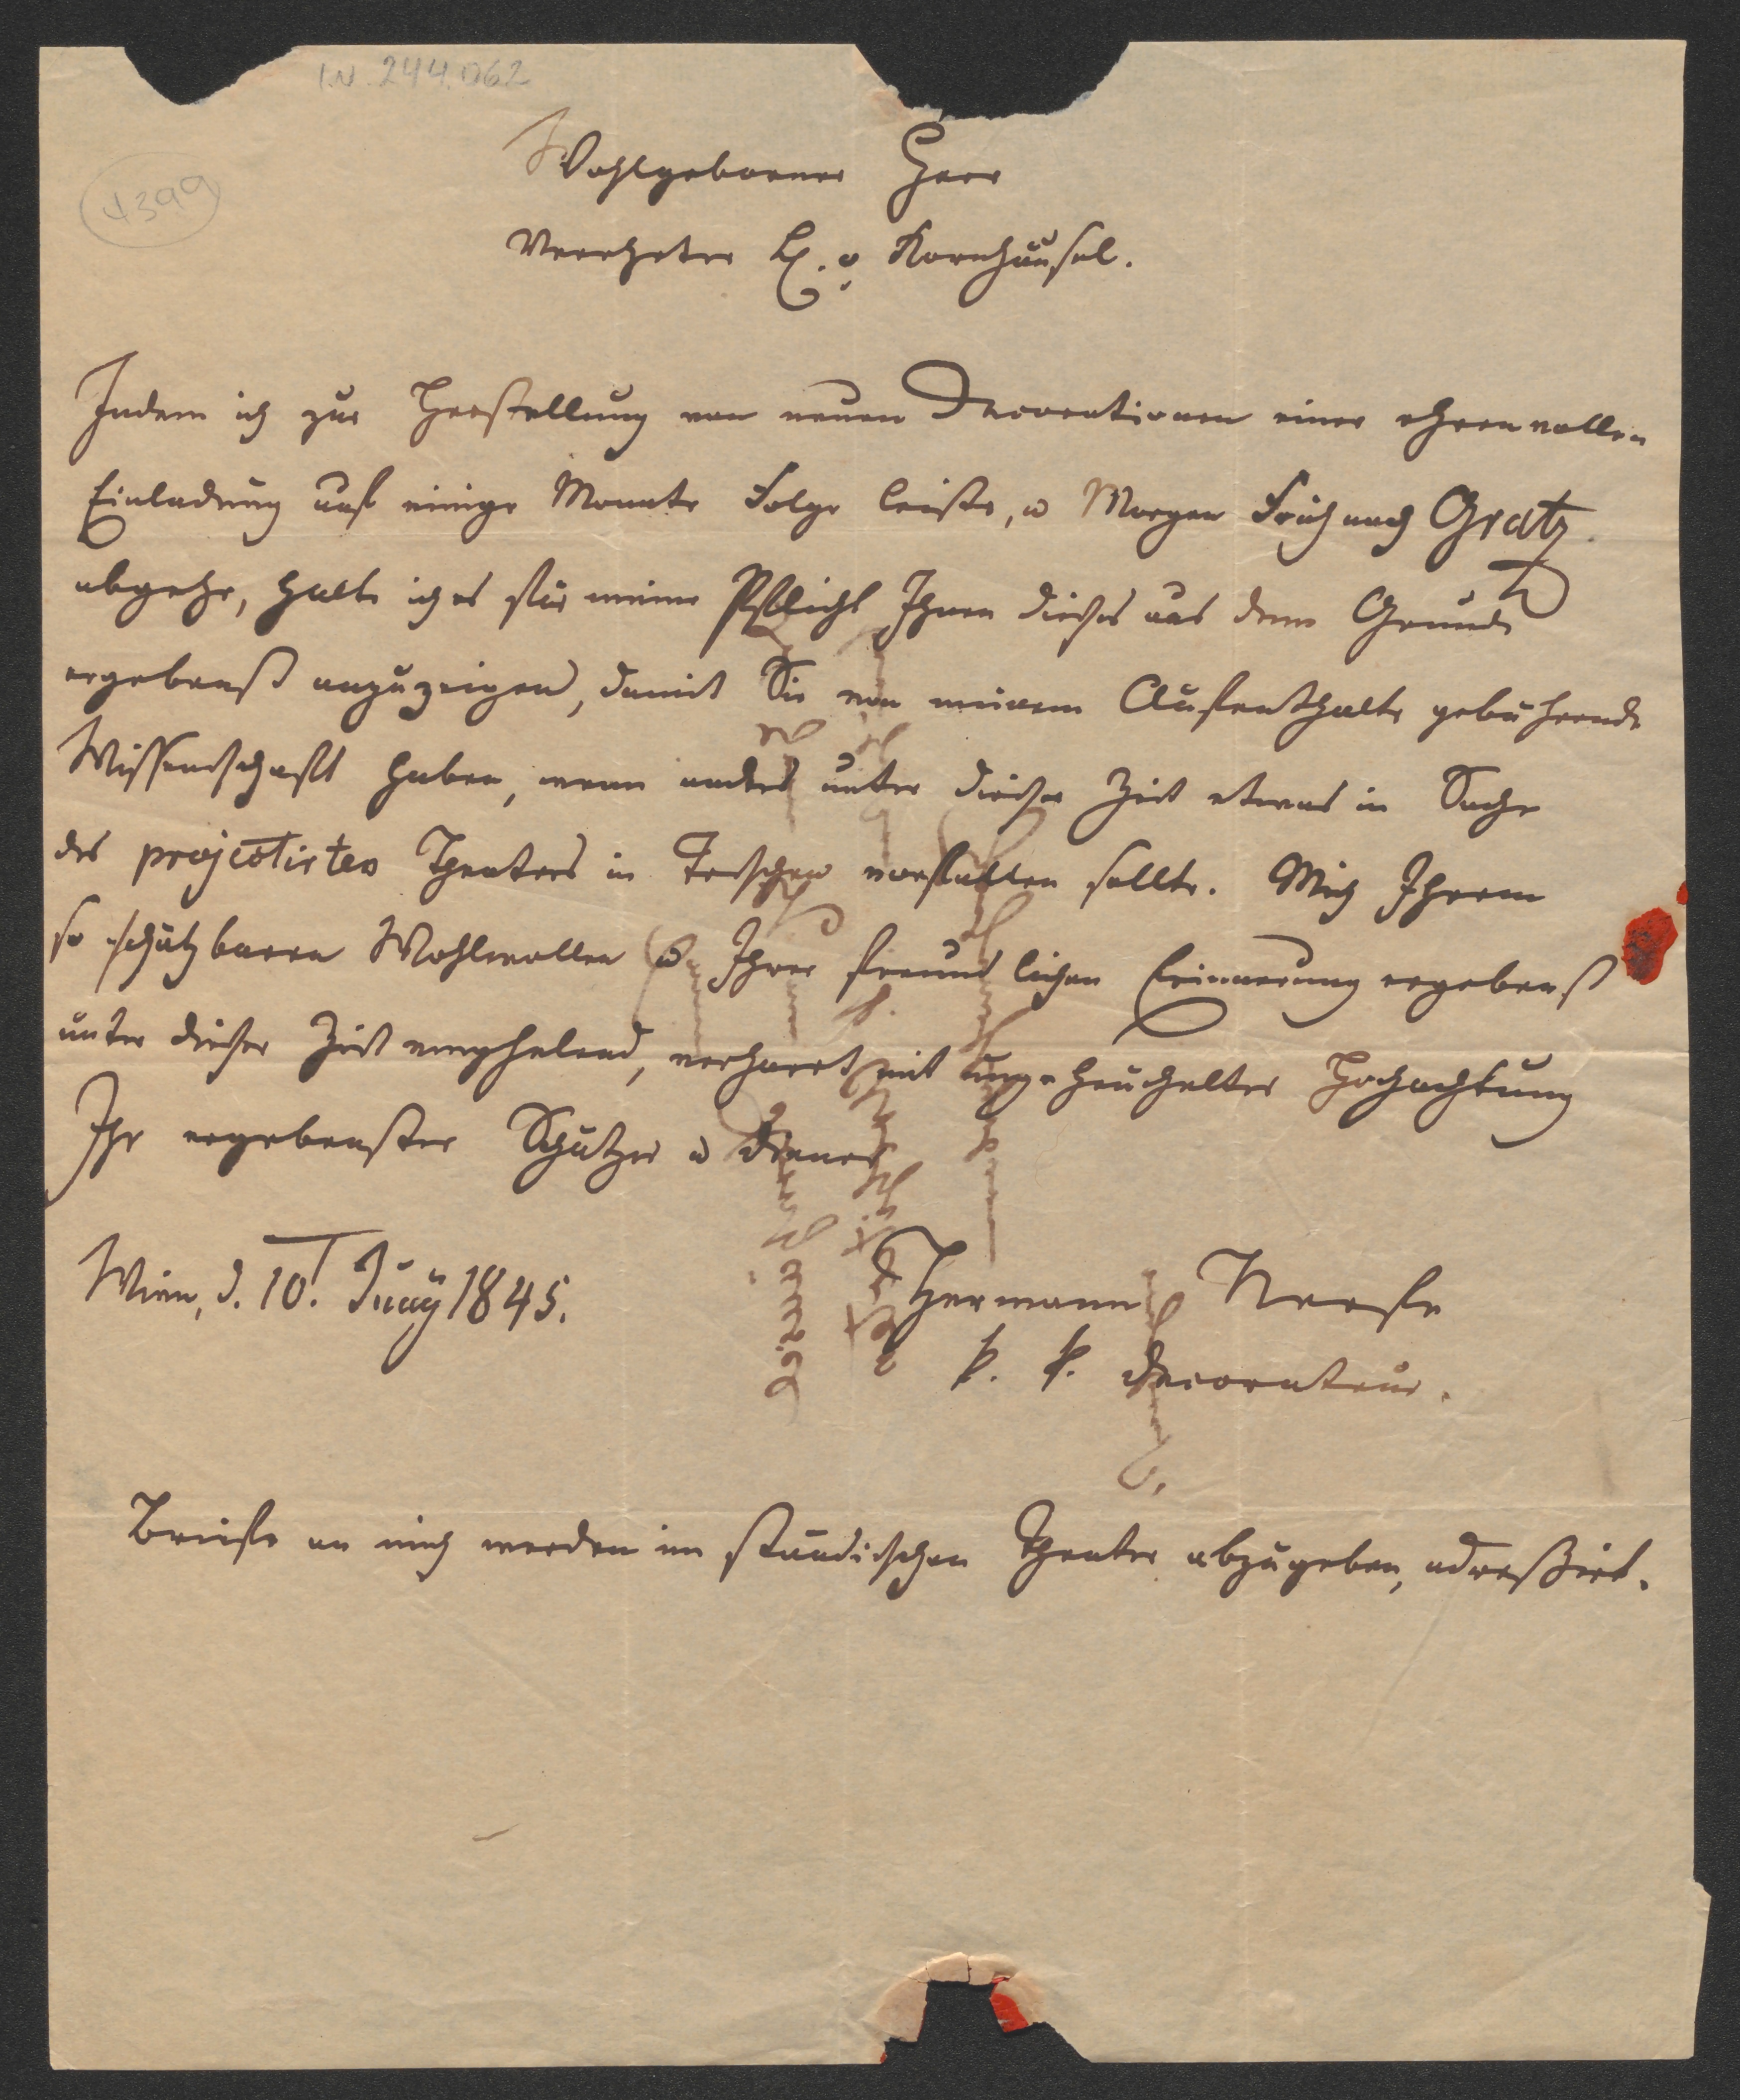 I.N. 244.062
4399
Wohlgeborner Herr
Verehrter H. v. Kornhäusel.
Indem ich zur Herstellung von neuen Decorationen einer ehrenvollen
Einladung auf einige Monate Folge leiste, u Morgen Früh nach Gratz
abgehe, halte ich es für meine Pflicht Ihnen dieses aus dem Grunde
ergebenst anzuzeigen, damit Sie von meinem Aufenthalte gebührende
Wissenschaft haben, wenn anders unter dieser Zeit etwas in Sache
des projectirten Theaters in Teschen vorfallen sollte. Mich Ihrem
so schätzbaren Wohlwollen u Ihrer freundlichen Erinnerung ergebenst
unter dieser Zeit emphelend, verharrt mit ungeheuchelter Hochachtung
Ihr ergebenster Schätzer u Diener
Wien, d. 10t. Juny 1845.
Hermann Neefe
k. k. Decorateur.
Briefe an mich werden im ständischen Theater abzugeben, adreßirt.